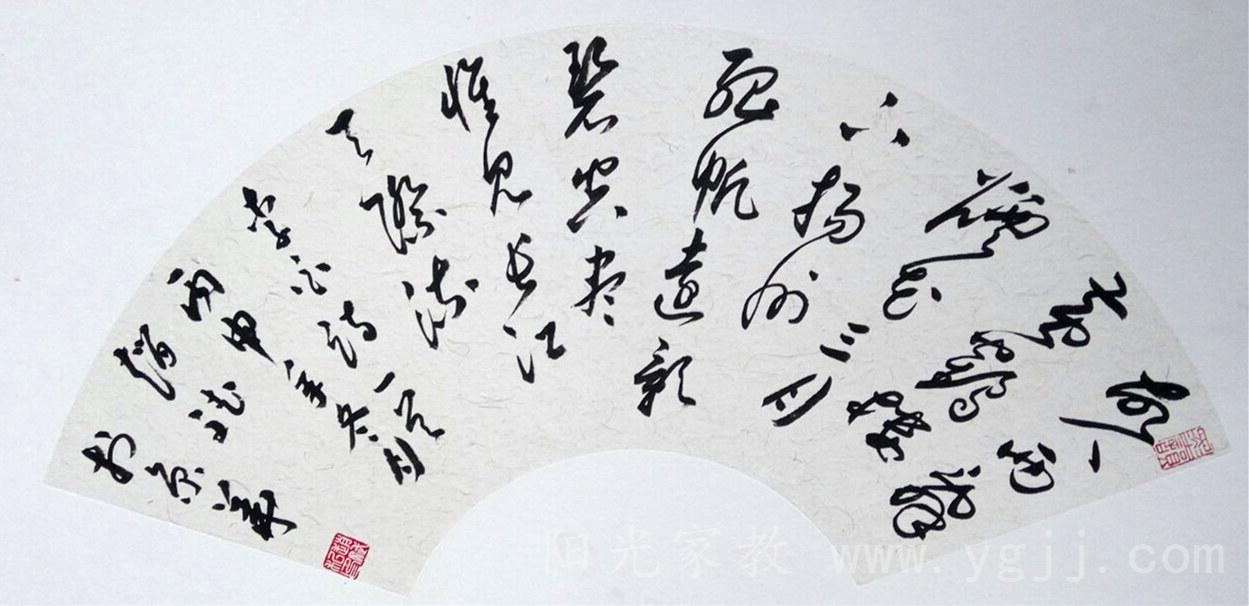 故人西辞
黄鹤楼
烟花三月
下扬州
孤帆远影
碧空尽
惟见长江
天际流
李白诗一首
丙申年冬月
于京华
阳光家教 www.ygjj.com